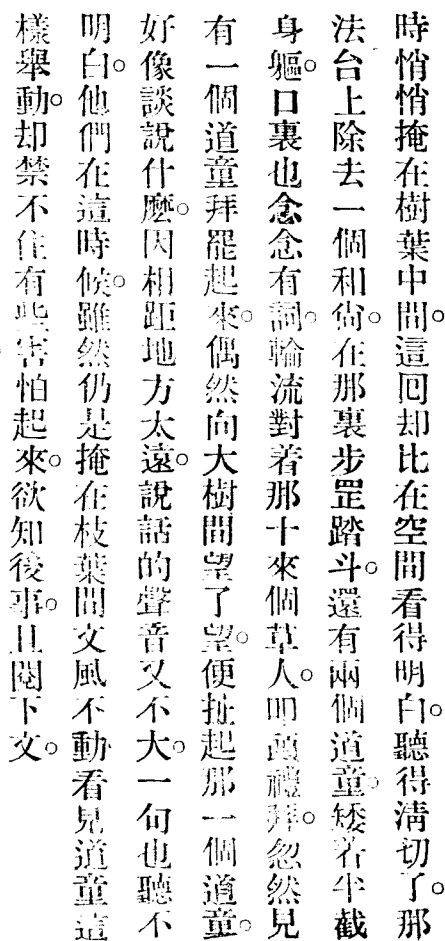 時悄悄掩在樹葉中間。這回却比在空間看得明白。聽得淸切了。那
法台上除去一個和尙。在那裏步罡踏斗。還有兩個道童。矮着半截
身軀。口裏也念念有詞。輪流對着那十來個草人。叩頭禮拜。忽然見
有一個道童拜罷起來。偶然向大樹間望了望。便扯起那一個道童。
好像談說什麽。因相距地方太遠。說話的聲音又不大。一句也聽不
明白。他們在這時候。雖然仍是掩在枝葉間文風不動。看見道童這
樣舉動。却禁不住有些害怕起來。欲知後事。且閱下文。